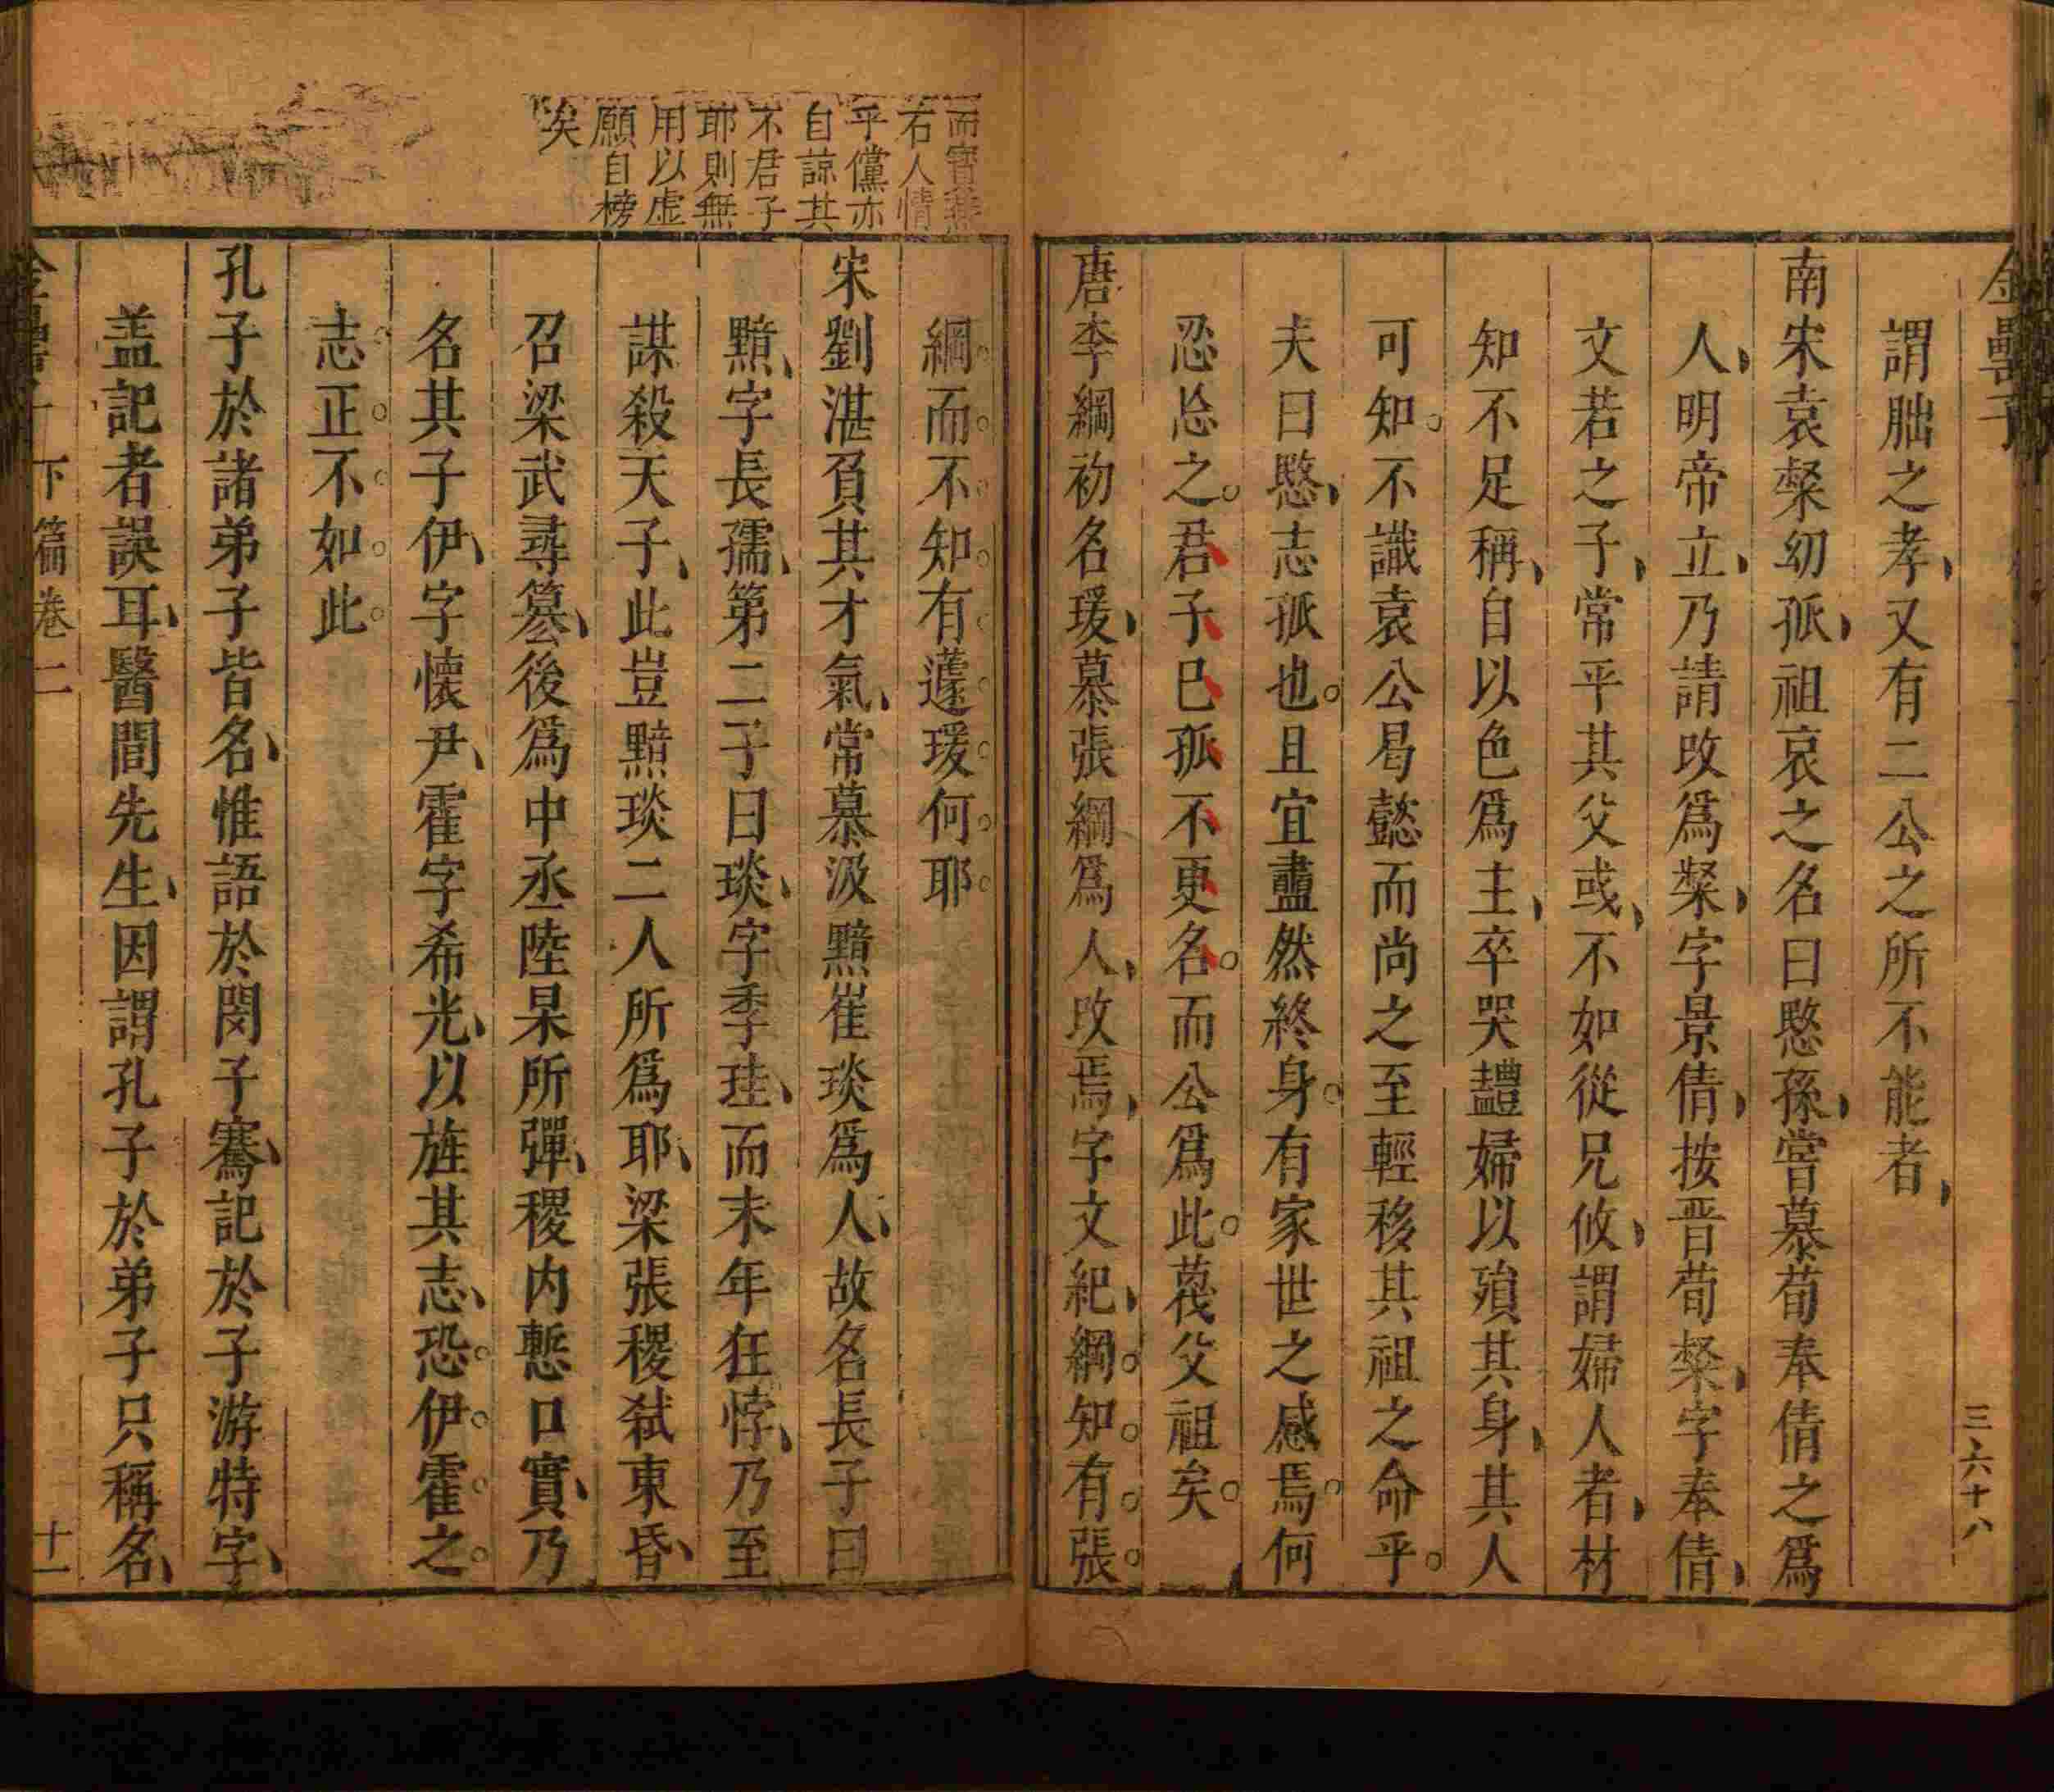 金罍子
三六十八
謂朏之孝又有二公之所不能者
南宋袁粲幼孤祖哀之名曰愍孫嘗慕荀奉倩之爲
人明帝立乃請改爲粲字景倩按晋荀粲字奉倩
文若之子常平其父彧不如從兄攸謂婦人者材
知不足稱自以色爲主卒哭軆婦以殞其身其人
可知不識袁公曷懿而尚之至輕移其祖之命乎
夫曰愍志孤也且宜衋然終身有家世之感焉何
忍忩之君子巳孤不更名而公爲此蔑父祖矣
唐李綱初名瑗慕張綱爲人改焉字文紀綱知有張
而實
右人情
乎儻亦
自諒其
不君子
耶則無
用以虛
願自榜
矣
綱而不知有蘧瑗何耶
宋劉湛負其才氣常慕汲黯崔琰爲人故名長子曰
黯字長孺第二子曰琰字季珪而末年狂悖乃至
謀殺天子此豈黯琰二人所爲耶梁張稷弑東昏
召梁武尋簒後爲中丞陸杲所彈稷内慙口實乃
名其子伊字懷尹霍字希光以旌其志恐伊霍之
志正不如此
孔子於諸弟子皆名惟語於閔子騫記於子游特字
盖記者誤耳醫間先生因謂孔子於弟子只稱名
下篇卷二
十一